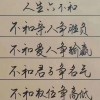 人生六不和
不和亲人争强负
不和爱人争输赢
不和君子争名气
不和权位争高低